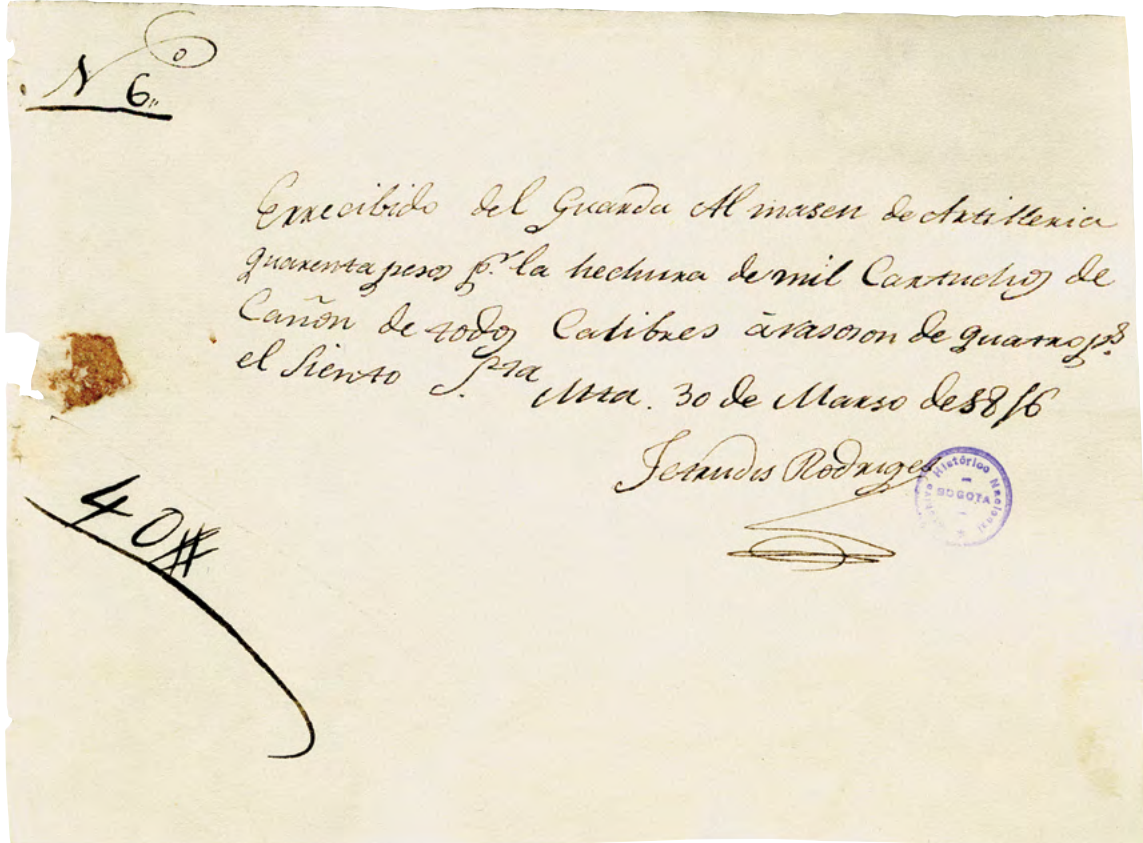 Nº 6.
Errecibido del Guarda Almasen de Artilleria
quarenta pesos p.r la hechura de mil Cartuchos de
Cañon de todos Calibres à rasoron de quatro p.s
el Siento S.ta Mta. 30 de Marso de 1816
Jetrudis Rodriges
Archivo Histórico Nacional
BOGOTA
40#